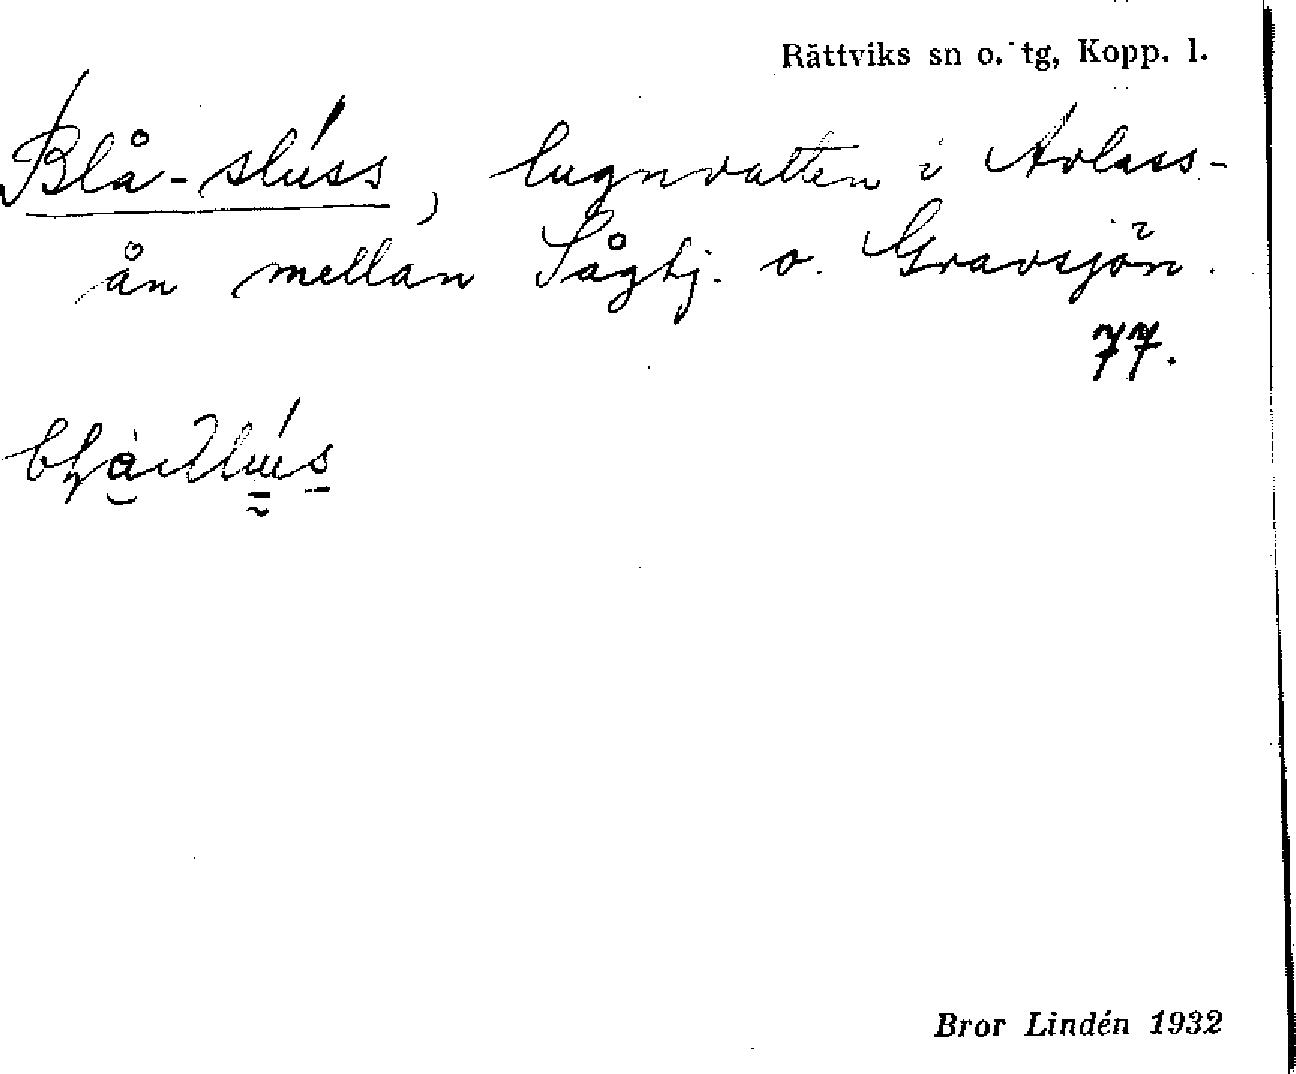 Rättviks sn o. tg, Kopp. l.
Blå-slúss, lugnvatten i Avlass-
ån mellan Sågtj. o. Gravsjön.
77.
Bror Lindén 1932